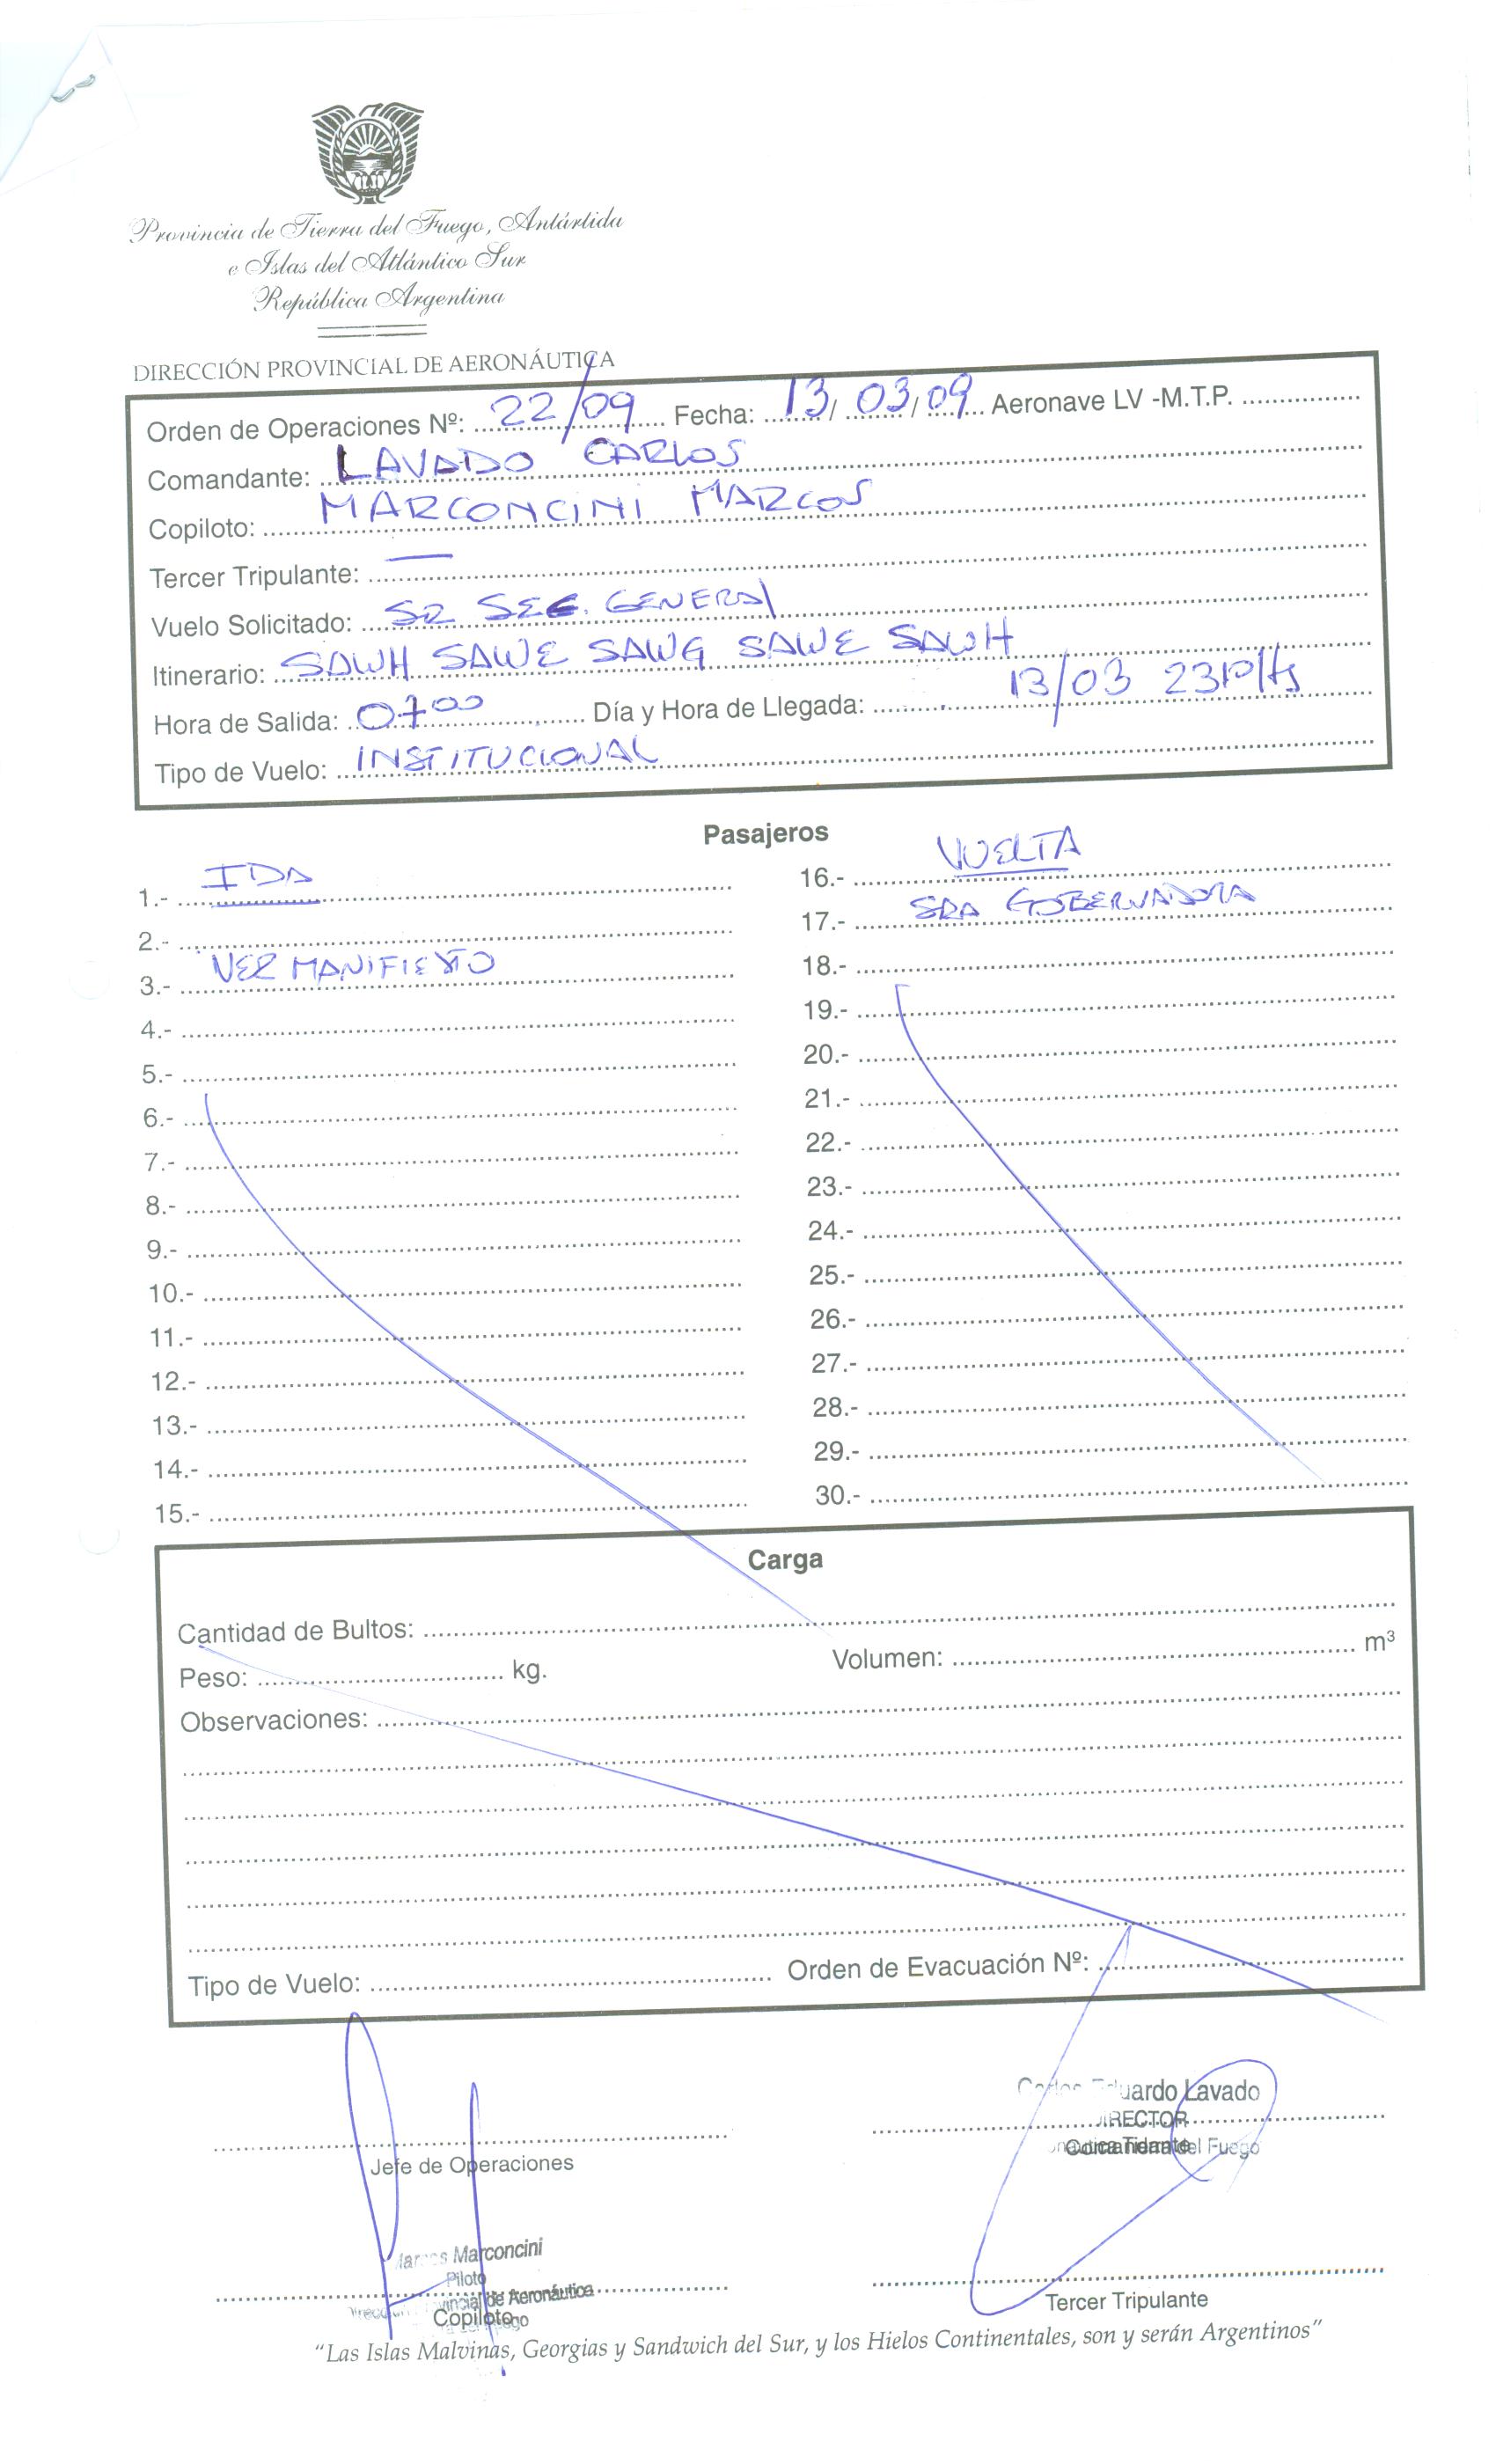 Provincia de Tierra del Fuego, Antártida
e Islas del Atlántico Sur
República Argentina
DIRECCIÓN PROVINCIAL DE AERONÁUTICA
Orden de Operaciones Nº: 22/09 Fecha: 13/03/09 Aeronave LV -M.T.P.
Comandante: LAVADO CARLOS
Copiloto: MARCONCINI MARCOS
Tercer Tripulante: —
Vuelo Solicitado: SR SEC. GENERAL
Itinerario: SAWH SAWE SAWG SAWE SAWH
Hora de Salida: 0700 Día y Hora de Llegada: 13/03 2310Hs
Tipo de Vuelo: INSTITUCIONAL
Pasajeros
1.- IDA
2.-
3.- VER MANIFIESTO
4.-
5.-
6.-
7.-
8.-
9.-
10.-
11.-
12.-
13.-
14.-
15.-
16.- VUELTA
17.- SRA GOBERNADORA
18.-
19.-
20.-
21.-
22.-
23.-
24.-
25.-
26.-
27.-
28.-
29.-
30.-
Carga
Cantidad de Bultos:
Peso: kg. Volumen: m³
Observaciones:
Tipo de Vuelo: Orden de Evacuación Nº:
Carlos Eduardo Lavado
DIRECTOR
Comandante del Fuego
Jefe de Operaciones
Marcos Marconcini
Piloto
de Aeronáutica
Copiloto
Tercer Tripulante
“Las Islas Malvinas, Georgias y Sandwich del Sur, y los Hielos Continentales, son y serán Argentinos”